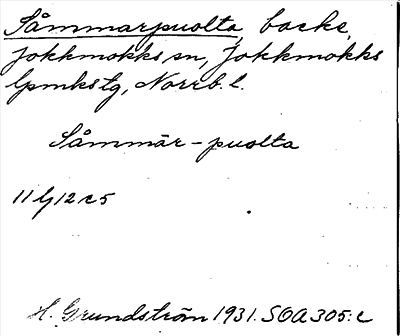 Såmmarpuolta, backe,
Jokkmokks sn, Jokkmokks
lpmkstg, Norrb. l.
Såmmār - puolta
H. Grundström 1931. SOA 305:c